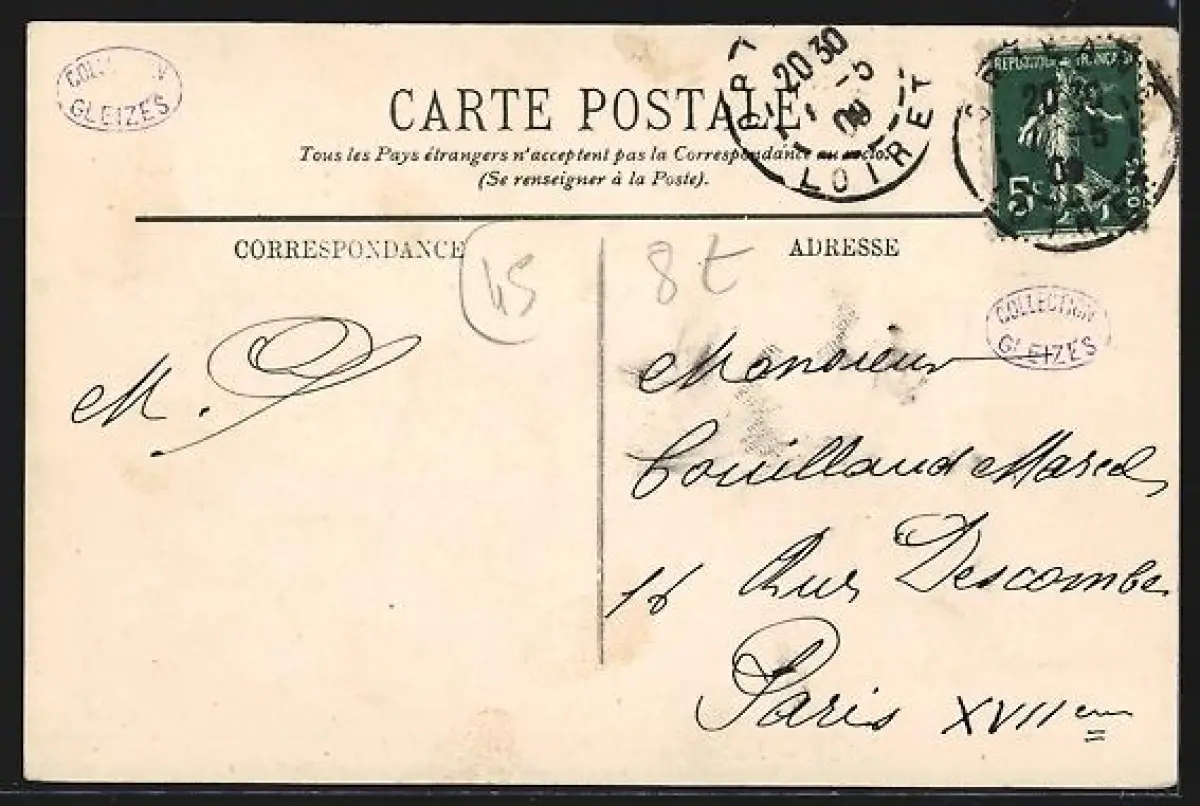 COLLECTION
GLEIZES
20 30
-5
09
LOIRET
REPUBLIQUE FRANÇAISE
5c
POSTES
CARTE POSTALE
Tous les Pays étrangers n'acceptent pas la Correspondance au recto.
(Se renseigner à la Poste).
CORRESPONDANCE
45
8t
ADRESSE
COLLECTION
GLEIZES
M.
Monsieur
Couillaud Marcel
16 Rue Descombes
Paris XVIIeme